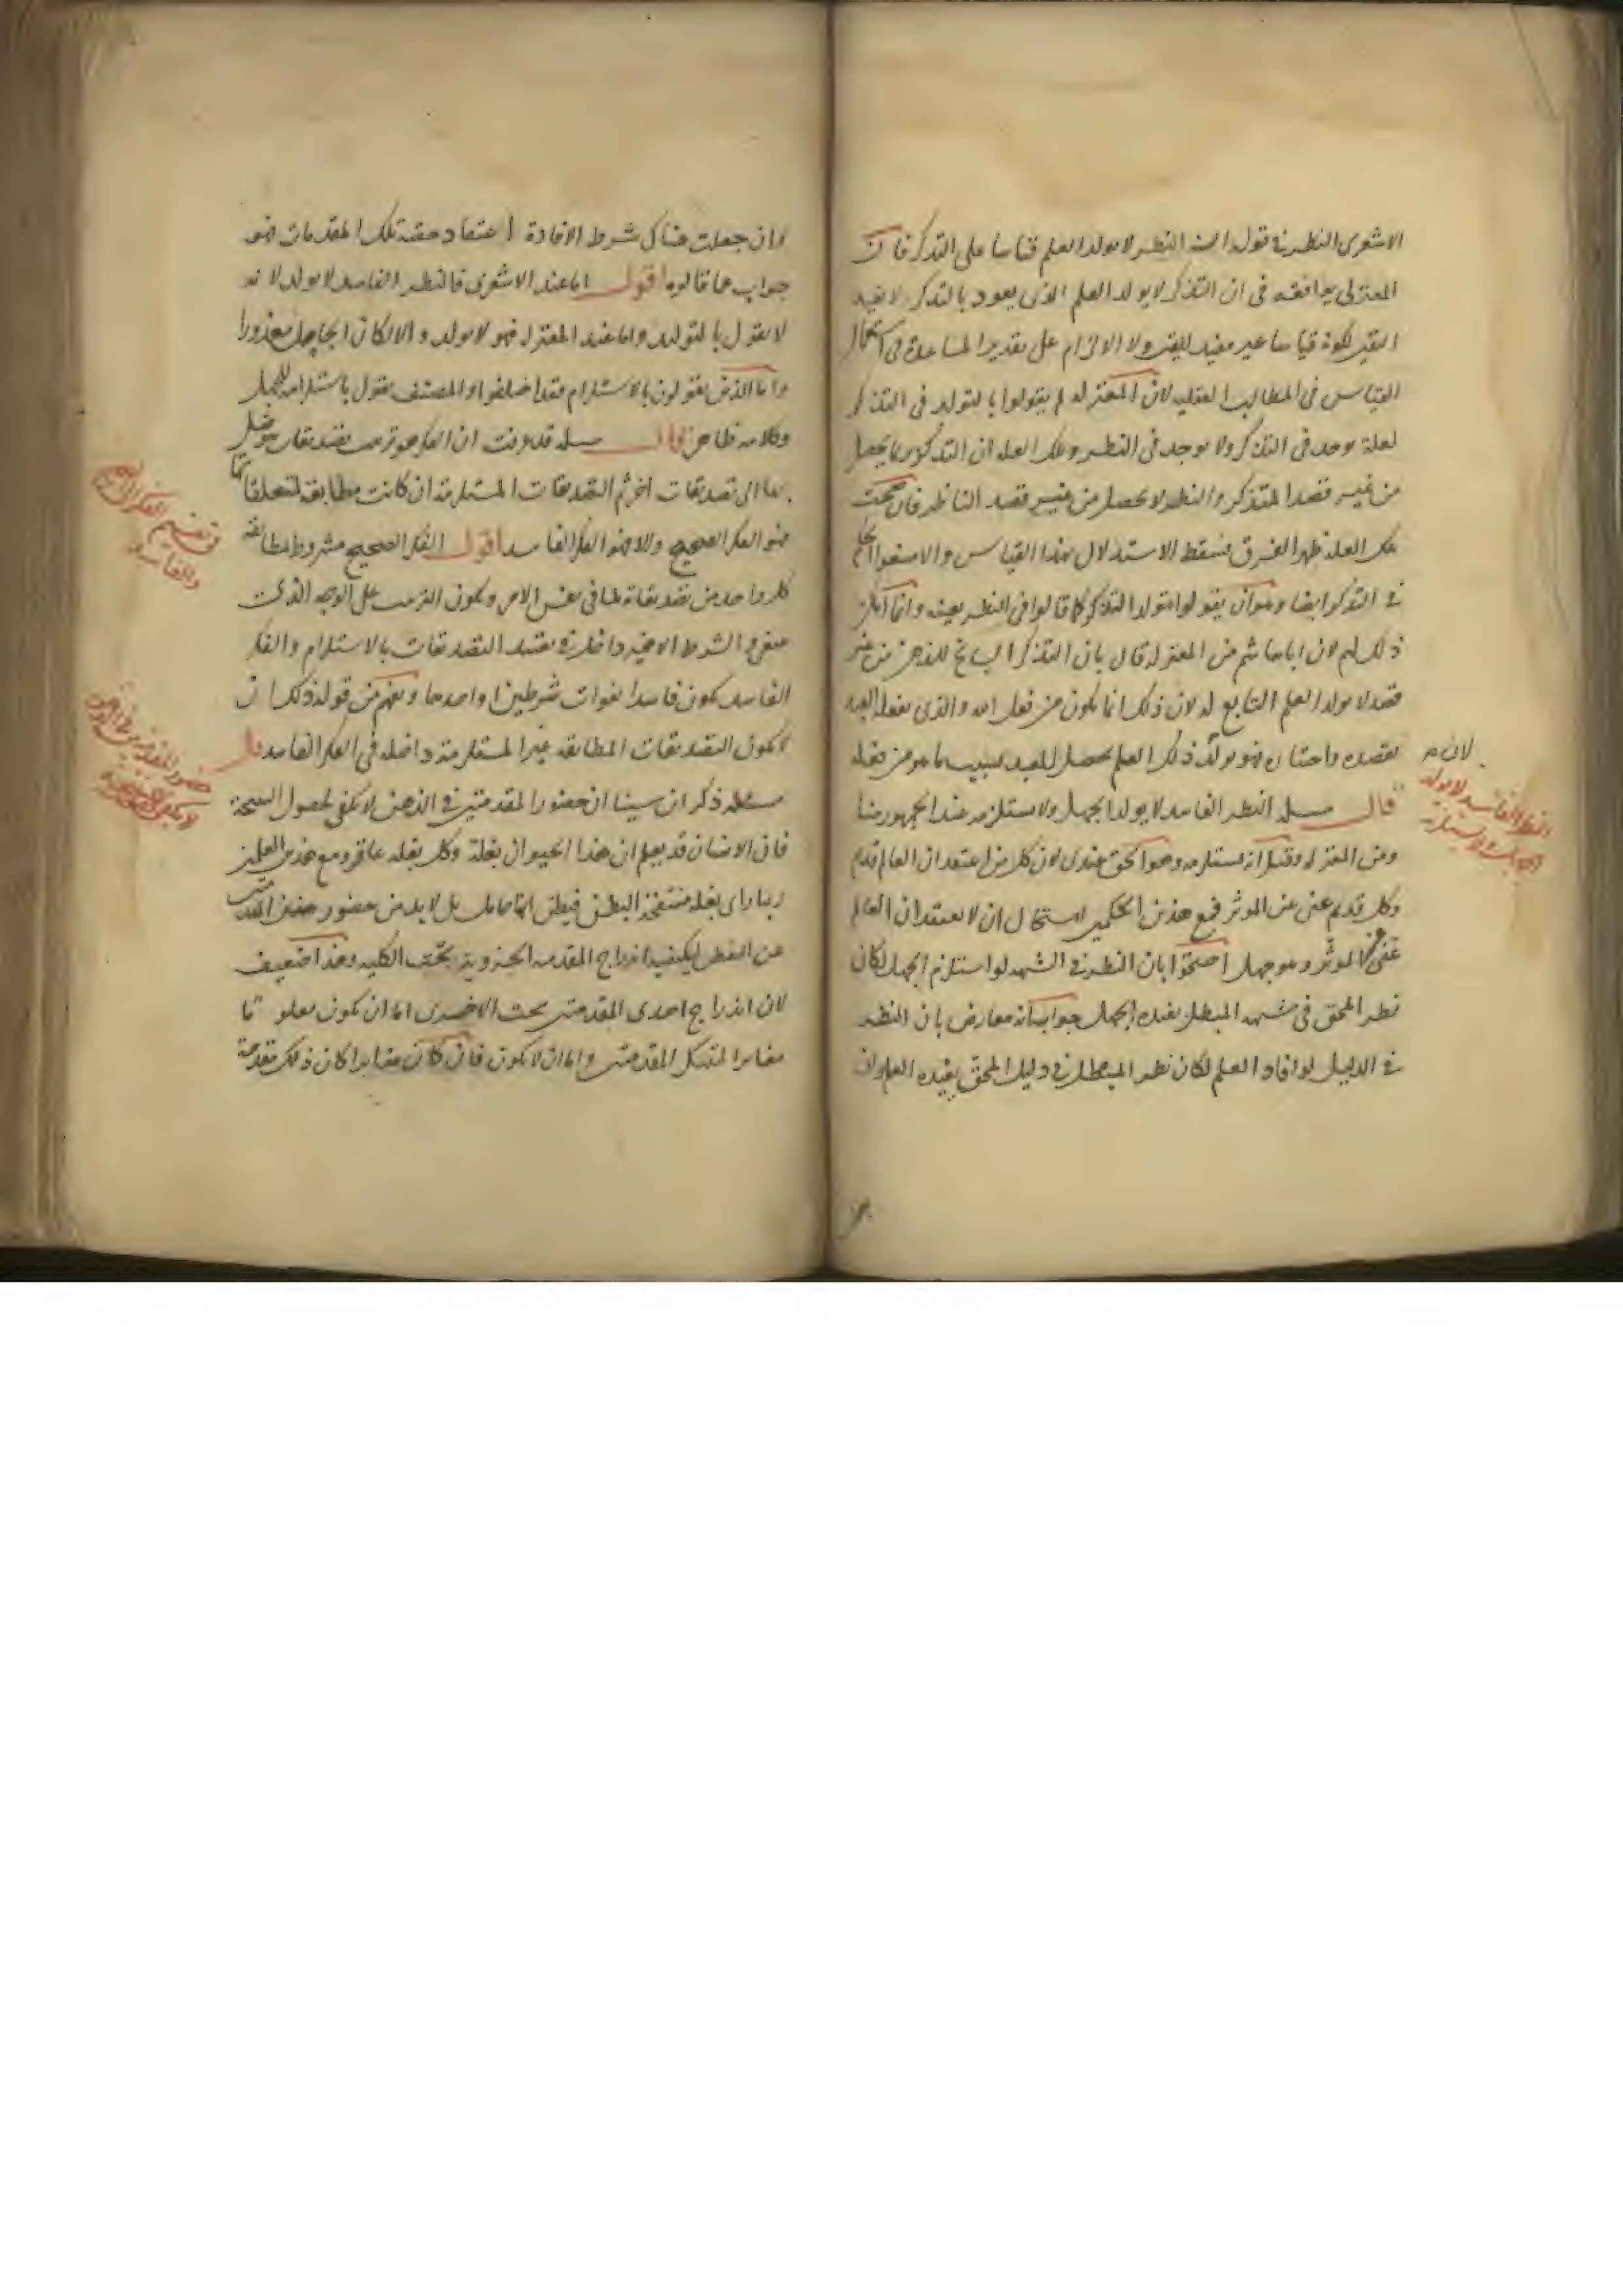 الاشعرى النظر فى قوله ان النظر لا يولد العلم قياسا على التذكر فان
المعتزلى يوافقه فى ان التذكر لا يولد العلم الذى يعود بالتذكر لا يفيد
اليقين لكونه قياسا غير مفيد لليقين ولا الالزام على تقدير المساعدة فى استعمال
القياس فى المطالب العقليه لان المعتزله لم يقولوا بالتولد فى التذكر
لعلة توجد فى التذكر ولا توجد فى النظر وتلك العله ان التذكر يحصل
من غير قصد المتذكر والنظر لا يحصل من غير قصد الناظر فان صحت
تلك العلة ظهر الفرق فسقط الاستدلال بهذا القياس والا منعوا الحكم
فى التذكر ايضا وهو ان يقولوا بتولد التذكر كما قالوا فى النظر بعينه وانما امكن
ذلك لهم لان اباهاشم من المعتزله قال بان التذكر السانح للذهن من غير
قصد لا يولد العلم التابع له لان ذلك انما يكون من فعل الله والذى يفعله العبد
بقصده واختياره فهو يولد ذلك العلم يحصل للعبد بسبب ما هو من فعله
لان
قال مسله النظر الفاسد لا يولد الجهل ولا يستلزمه عند الجمهور منا
النظر الفاسد لا يولد
ومن المعتزله وقيل انه يستلزمه وهو الحق عندى لان كل من اعتقد ان العالم قديم
وكل قديم غنى عن الموثر فمع هذين الحكمين استحال ان لا يعتقد ان العالم
غنى عن الموثر وهو جهل احتجوا بان النظر فى الشبهه لو استلزم الجهل لكان
نظر المحق فى شبهه المبطل يفيده الجهل جوابه انه معارض بان النظر
فى الدليل لو افاد العلم لكان نظر المبطل فى دليل المحق يفيده العلم وان
وان جعلت هناك شرط الافادة اعتقاد حقية تلك المقدمات فهو
جواب عما قالوه اقول اما عند الاشعرى فالنظر الفاسد لا يولد لانه
لا يقول بالتولد واما عند المعتزله فهو لا يولد والا لكان الجاهل معذورا
واما الذين يقولون بالاستلزام فقد اختلفوا والمصنف يقول باستلزامه للجهل
وكلامه ظاهر قال مسله قد عرفت ان الفكر هو ترتيب تصديقات يتوصل
بها الى تصديقات اخر ثم التصديقات المستلزمة ان كانت مطابقه لمتعلقاتها
فهو الفكر الصحيح والا فهو الفكر الفاسد اقول الفكر الصحيح مشروط بمطابقة
فى تقسيم الفكر الى الصحيح
والفاسد
كل واحد من تصديقاته لما فى نفس الامر وبكون الترتيب على الوجه الذى
ينبغى والشرط الاخير داخل فى تقييد التصديقات بالاستلزام والفكر
الفاسد يكون فاسدا بفوات شرطين او احدهما ويفهم من قوله ذلك ان
لا تكون التصديقات المطابقه غير المستلزمة داخله فى الفكر الفاسد قال
حضور المقدمتين فى الذهن
لا يكفى
مسئله ذكر ابن سينا ان حضور المقدمتين فى الذهن لا يكفى لحصول النتيجة
فان الانسان قد يعلم ان هذا الحيوان بغلة وكل بغله عاقر ومع هذين العلمين
ربما راى بغله منتفخة البطن فيظن انها حامل بل لا بد من حضور هذين المقدمتين
من التفطن لكيفية اندراج المقدمه الجزوية تحت الكليه وهذا ضعيف
لان اندراج احدى المقدمتين تحت الاخرى اما ان يكون معلوما
مغايرا لتينك المقدمتين واما ان لا يكون فان كان مغايرا كان ذلك مقدمة